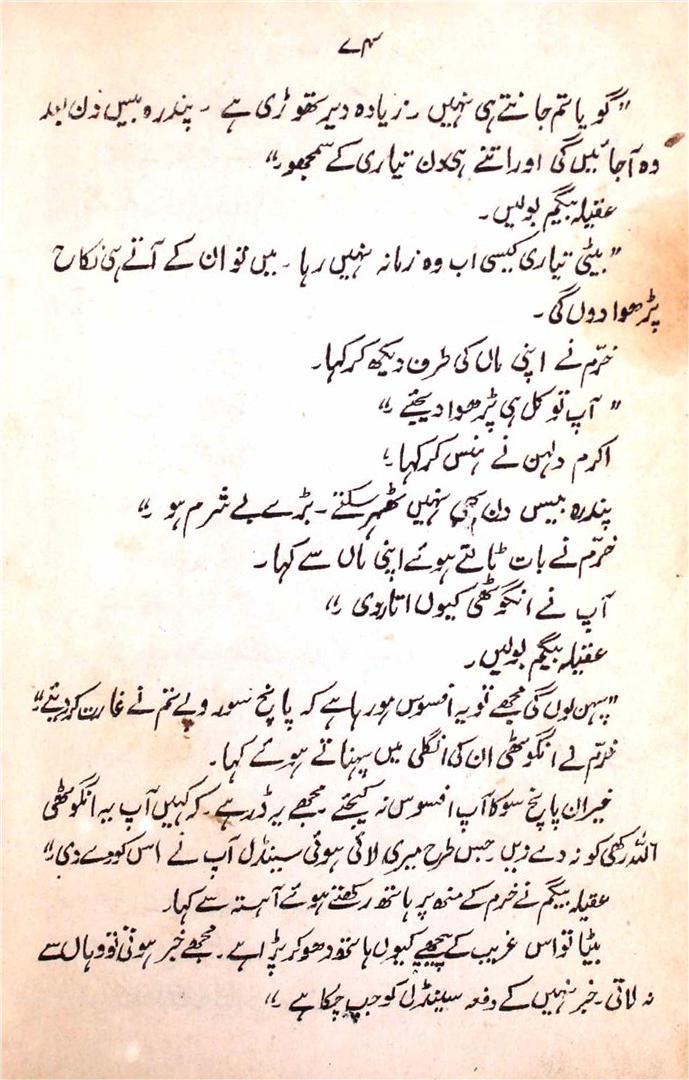 ۷۴
"گویا تم جانتے ہی نہیں ۔ زیادہ دیر تھوڑی ہے ۔ پندرہ بیس دن بعد
وہ آجائیں گی اور اتنے ہی دن تیاری کے سمجھو ۔"
عقیلہ بیگم بولیں۔
"بیٹی تیاری کیسی اب وہ زمانہ نہیں رہا ۔ میں تو ان کے آتے ہی نکاح
پڑھوا دوں گی ۔
خرّم نے اپنی ماں کی طرف دیکھ کر کہا۔
"آپ تو کل ہی پڑھوا دیجئے ۔"
اکرم دلہن نے ہنس کر کہا۔
پندرہ بیس دن بھی نہیں ٹھہر سکتے ۔ بڑے بے شرم ہو ۔"
خرّم نے بات ٹالتے ہوئے اپنی ماں سے کہا۔
آپ نے انگوٹھی کیوں اتار دی ۔"
عقیلہ بیگم بولیں۔
"پہن لوں گی مجھے تو یہ افسوس ہو رہا ہے کہ پانچ سو روپے تم نے غارت کر دیئے۔"
خرّم نے انگوٹھی ان کی انگلی میں پہناتے ہوئے کہا۔
خیر ان پانچ سو کا آپ افسوس نہ کیجئے ۔ مجھے یہ ڈر ہے ۔ کہ کہیں آپ یہ انگوٹھی
اللہ رکھی کو نہ دے دیں ۔ جس طرح میری لائی ہوئی سینڈل آپ نے اس کو دے دی۔"
عقیلہ بیگم نے خرم کے منہ پر ہاتھ رکھتے ہوئے آہستہ سے کہا۔
بیٹا تو اس غریب کے پیچھے کیوں ہاتھ دھو کر پڑا ہے ۔ مجھے خبر ہوتی تو وہاں سے
نہ لاتی ۔ خبر نہیں کے دفعہ سینڈل کو جپ چکا ہے ۔"